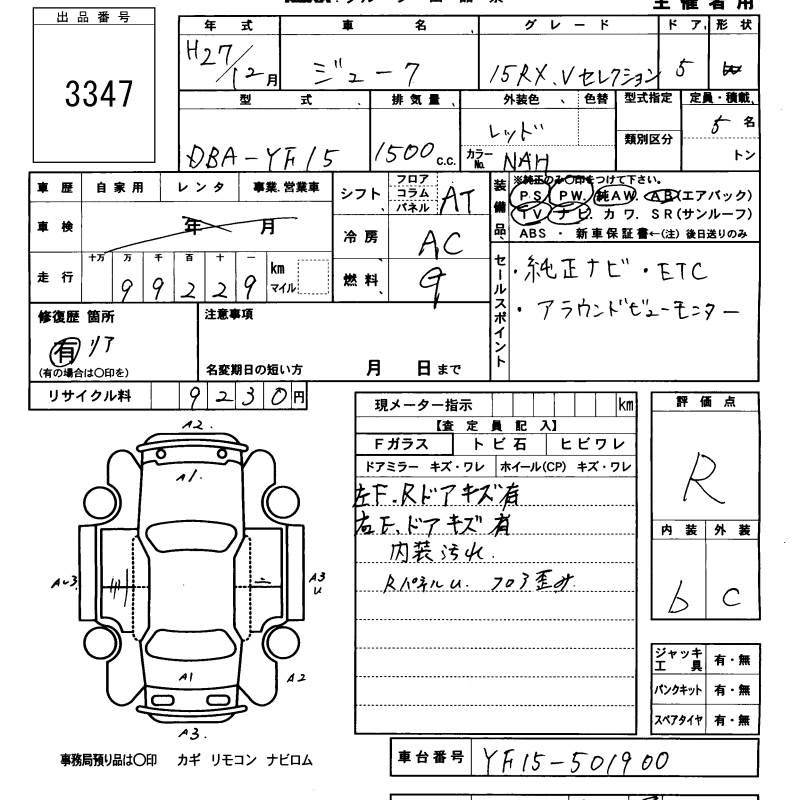 主催者用
出品番号
3347
年式 車名 グレード ドア 形状
H27/12月 ジューク 15RX.Vセレクション 5 W
型式 排気量 外装色 色替 型式指定 定員・積載
DBA-YF15 1500c.c. レッド 類別区分 5名
カラーNo. NAH トン
車歴 自家用 レンタ 事業.営業車
車検 年 月
走行 十万 万 千 百 十 一 km マイル
99229
シフト フロア コラム パネル AT
冷房 AC
燃料
装備品
※純正のみ〇印をつけて下さい。
PS PW. 純AW. AB(エアバック)
TV ナビ. カワ. SR(サンルーフ)
ABS ・ 新車保証書←(注) 後日送りのみ
セールスポイント
・純正ナビ・ETC
・アラウンドビューモニター
修復歴 箇所
有 リア
(有の場合は〇印を)
注意事項
名変期日の短い方 月 日まで
リサイクル料 9230円
現メーター指示 km
【査定員記入】
Fガラス トビ石 ヒビワレ
ドアミラー キズ・ワレ ホイール(CP) キズ・ワレ
左F.Rドアキズ有
右F.ドアキズ有
内装汚れ.
RパネルU. フロア歪み
評価点
R
内装 外装
b C
A2.
A1
A3
U
A1
A2
A3.
ジャッキ工具 有・無
パンクキット 有・無
スペアタイヤ 有・無
事務局預り品は〇印 カギ リモコン ナビロム
車台番号 YF15-501900